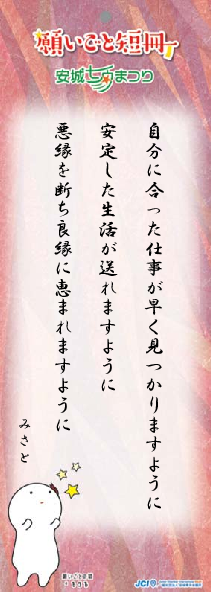 願いごと短冊
安城七夕まつり
自分に合った仕事が早く見つかりますように
安定した生活が送れますように
悪縁を断ち良縁に恵まれますように
みさと
願いごと短冊
JCI